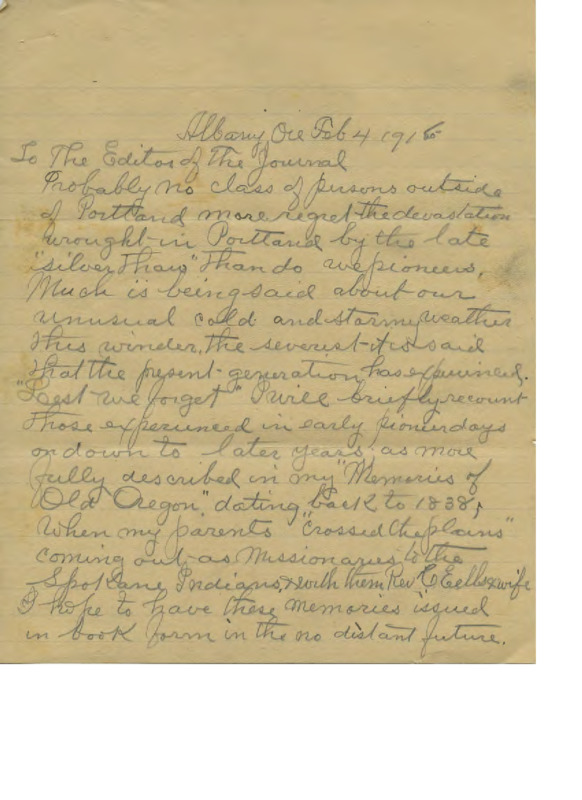 Albany, Ore Feb 4 1916
To The Editor of The Journal
Probably no class of persons outside
of Portland more regret the devastation
wrought in Portland by the late
"silver Thaw" Than do we pioneers.
Much is being said about our
unusual cold and stormy weather
this winder, the severest it is said
that the present generation has expeirenced.
"Lest we forget" I will briefly recount
those experienced in early pioner days
on down to later years as more
fully described in my "Memories of
Old Oregon", dating back to 1838,
when my parents "crossed the plains"
coming out as Missionaries to the
Spokane Indians, & with them Rev C Eells & wife
I hope to have these memories issued
in book form in the no distant future.